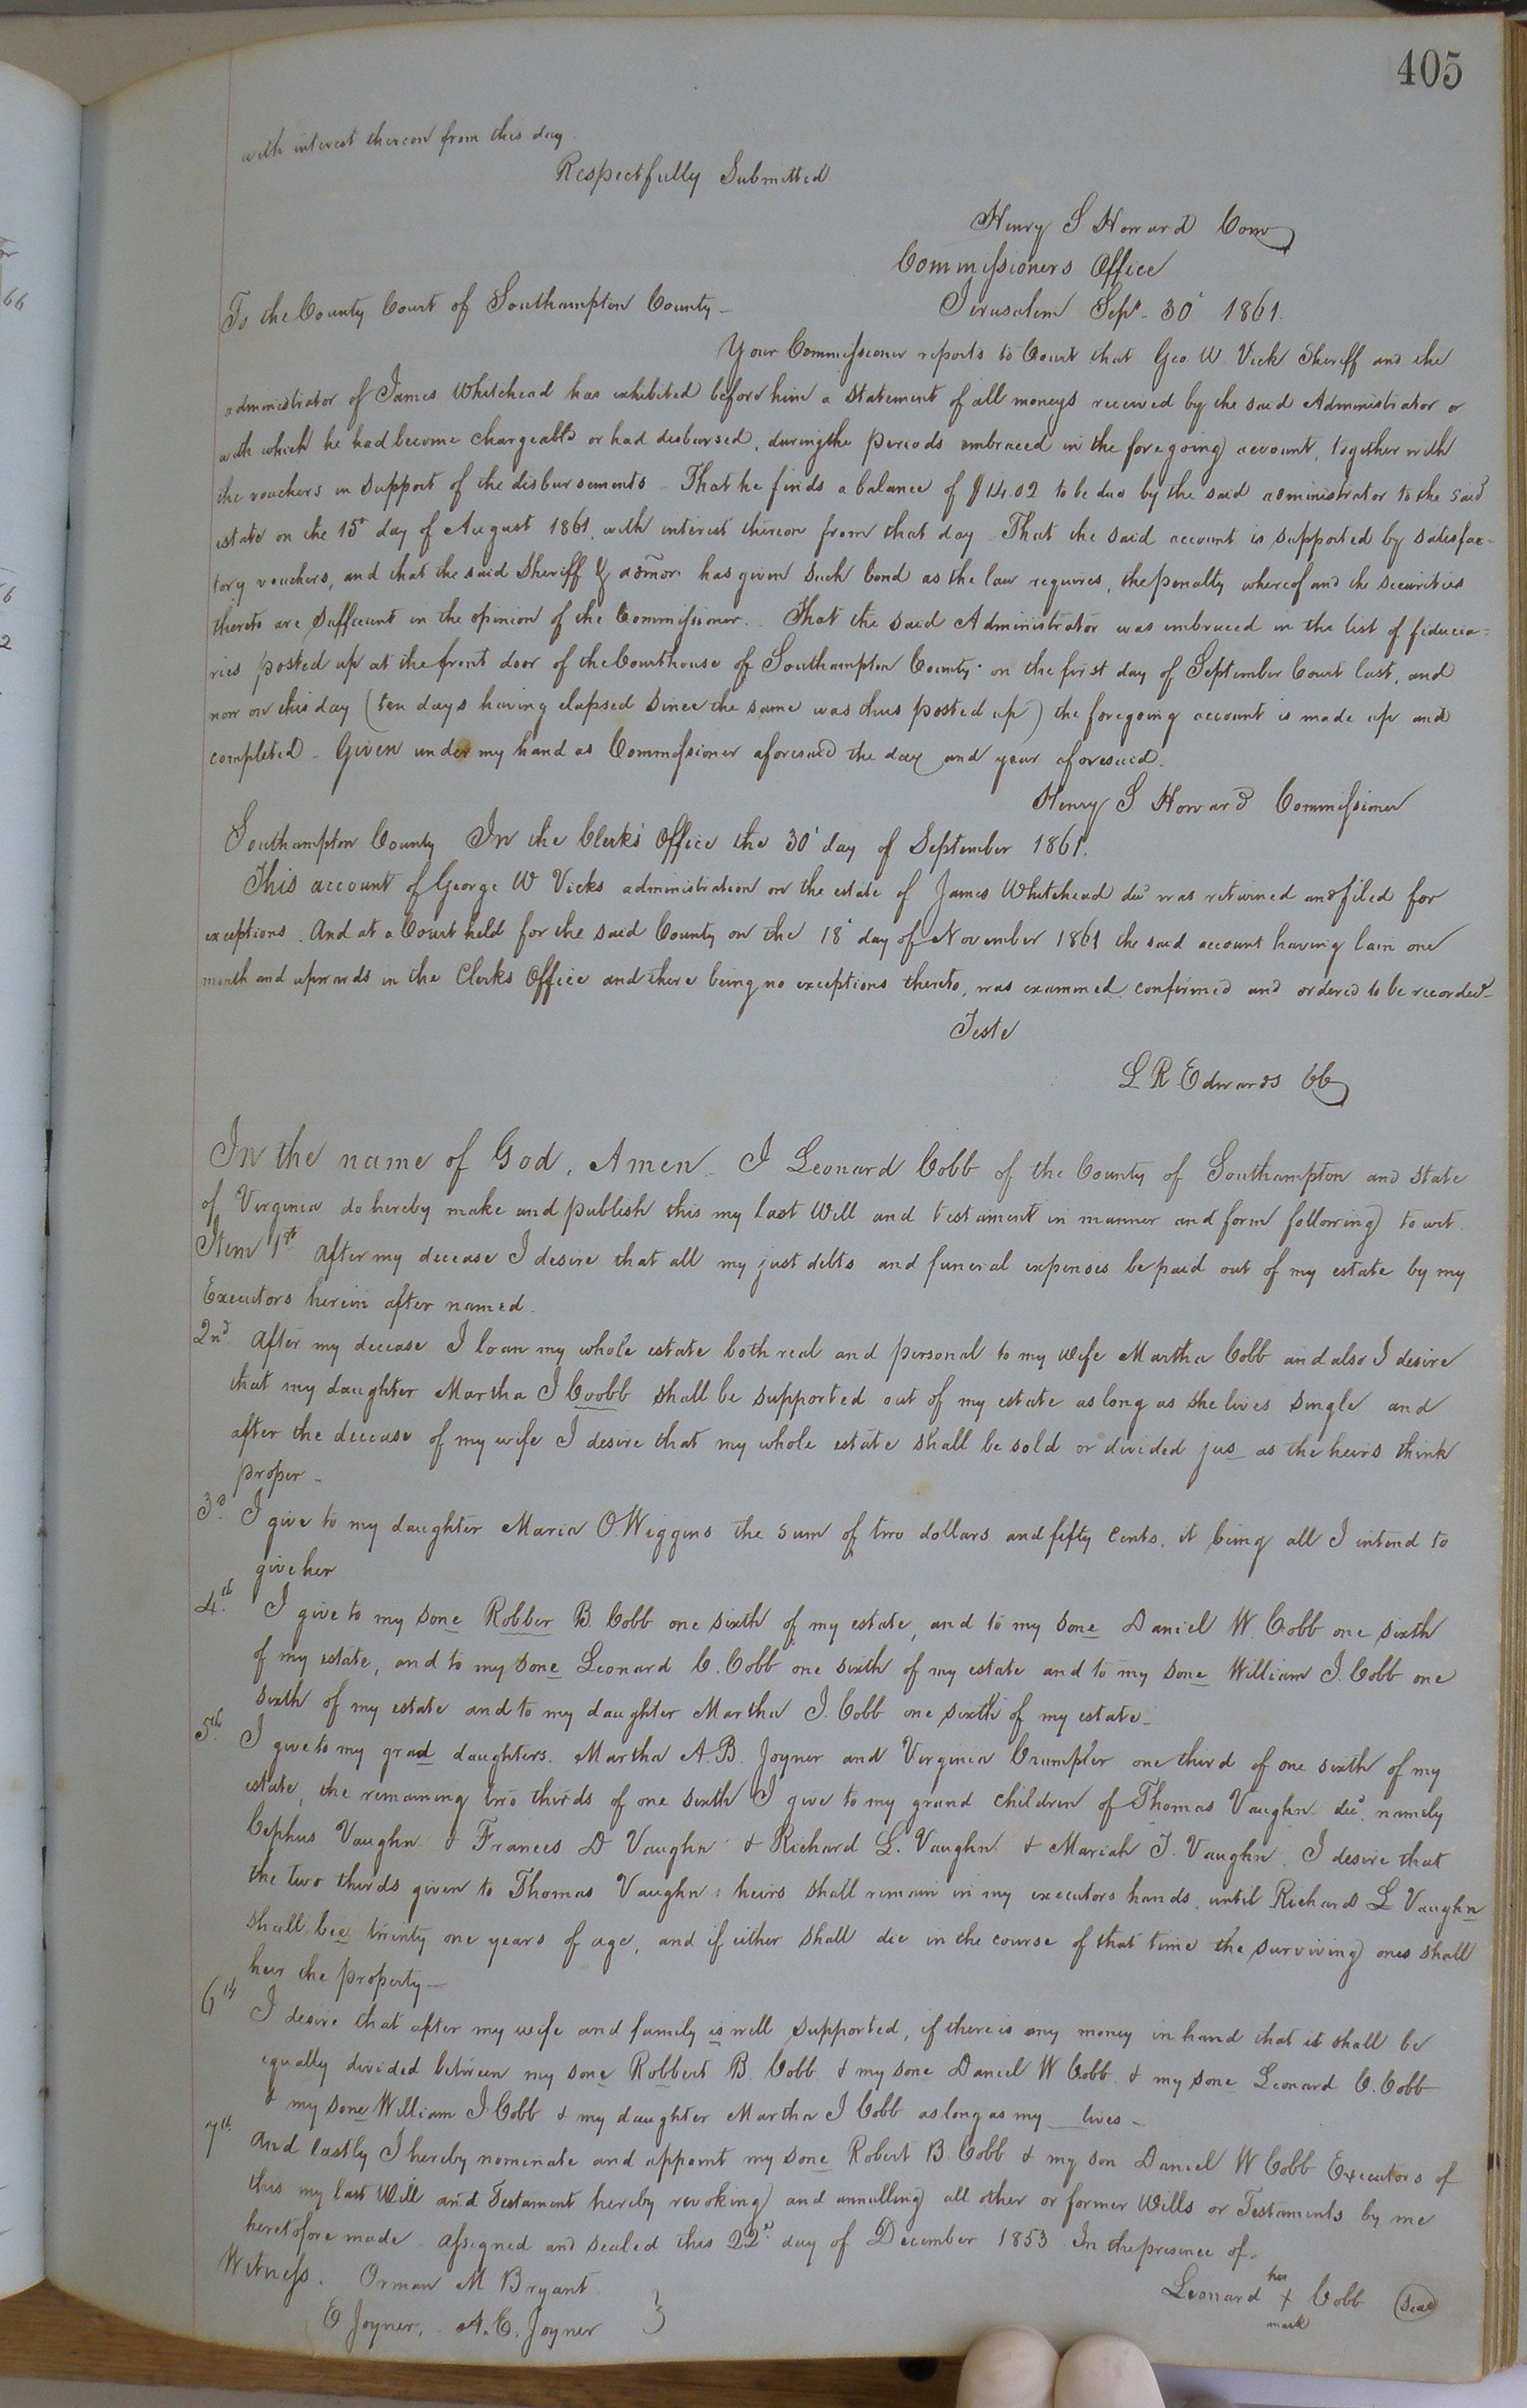 405
with interest thereon from this day.
Respectfully Submitted
Henry S Howard Com
Commissioners Office
To the County Court of Southampton County - Jerusalem Sept. 30' 1861.
Your Commissioner reports to Court that Geo. W. Vick Sheriff and the
administrator of James Whitehead has exhibited before him a statement of all moneys received by the said Administrator or
with which he had become chargeable or had disbursed, during the periods embraced in the foregoing account, together with
the vouchers in support of the disbursements - That he finds a balance of $14.02 to be due by the said administrator to the said
estate on the 15' day of August 1861, with interest thereon from that day - That the said account is supported by satisfac-
tory vouchers, and that the said Sheriff & admor has given such bond as the law requires, the penalty whereof and the securities
thereto are sufficient in the opinion of the Commissioner. That the said Administrator was embraced in the list of fiducia=
ries posted up at the front door of the Courthouse of Southampton County on the first day of September Court last, and
now on this day (ten days having elapsed since the same was thus posted up) the foregoing account is made up and
completed - Given under my hand as Commissioner aforesaid the day and year aforesaid.
Henry S Howard Commissioner
Southampton County In the Clerks Office the 30' day of September 1861.
This account of George W Vicks administration on the estate of James Whitehead decd was returned and filed for
exceptions. And at a Court held for the said County on the 18' day of November 1861 the said account having lain one
month and upwards in the Clerks Office and there being no exceptions thereto, was examined confirmed and ordered to be recorded -
Teste
L R Edwards CC
In the name of God, Amen - I Leonard Cobb of the County of Southampton and State
of Virginia do hereby make and publish this my last Will and testament in manner and form following to wit
Item 1st After my decease I desire that all my just debts and funeral expenses be paid out of my estate by my
Executors herein after named.
2nd After my decease I loan my whole estate both real and personal to my wife Martha Cobb and also I desire
that my daughter Martha J Coobb shall be supported out of my estate as long as she lives single and
after the decease of my wife I desire that my whole estate shall be sold or divided jus as the heirs think
proper -
3d I give to my daughter Maria O. Wiggins the sum of two dollars and fifty cents, it being all I intend to
give her
4th I give to my sone Robber B. Cobb one sixth of my estate, and to my sone Daniel W. Cobb one sixth
of my estate, and to my sone Leonard C. Cobb one sixth of my estate and to my sone William J. Cobb one
sixth of my estate and to my daughter Martha J. Cobb one sixth of my estate -
5th I give to my grad daughters. Martha A. B. Joyner and Virginia Crumpler one third of one sixth of my
estate, the remaining two thirds of one sixth I give to my grand children of Thomas Vaughn decd namely
Cephus Vaughn & Frances D Vaughn & Richard L. Vaughn & Mariah J. Vaughn. I desire that
the two thirds given to Thomas Vaughn s heirs shall remain in my executors hands, until Richard L Vaughn
shall bie twinty one years of age, and if either shall die in the course of that time the surviving ones shall
heir the property -
6th I desire that after my wife and family is well supported, if there is any money in hand that it shall be
equally divided between my sone Robbert B. Cobb & my sone Daniel W Cobb & my sone Leonard C. Cobb
& my sone William J Cobb & my daughter Martha J Cobb as long as my lives -
7th And lastly I hereby nominate and appoint my sone Robert B. Cobb & my son Daniel W Cobb Executors of
this my last Will and Testament hereby revoking and annulling all other or former Wills or Testaments by me
heretofore made assigned and sealed this 22d day of December 1853 In the presence of.
Witness. Orman M Bryant
E Joyner, A. E. Joyner }
Leonard his + mark Cobb (Seal)